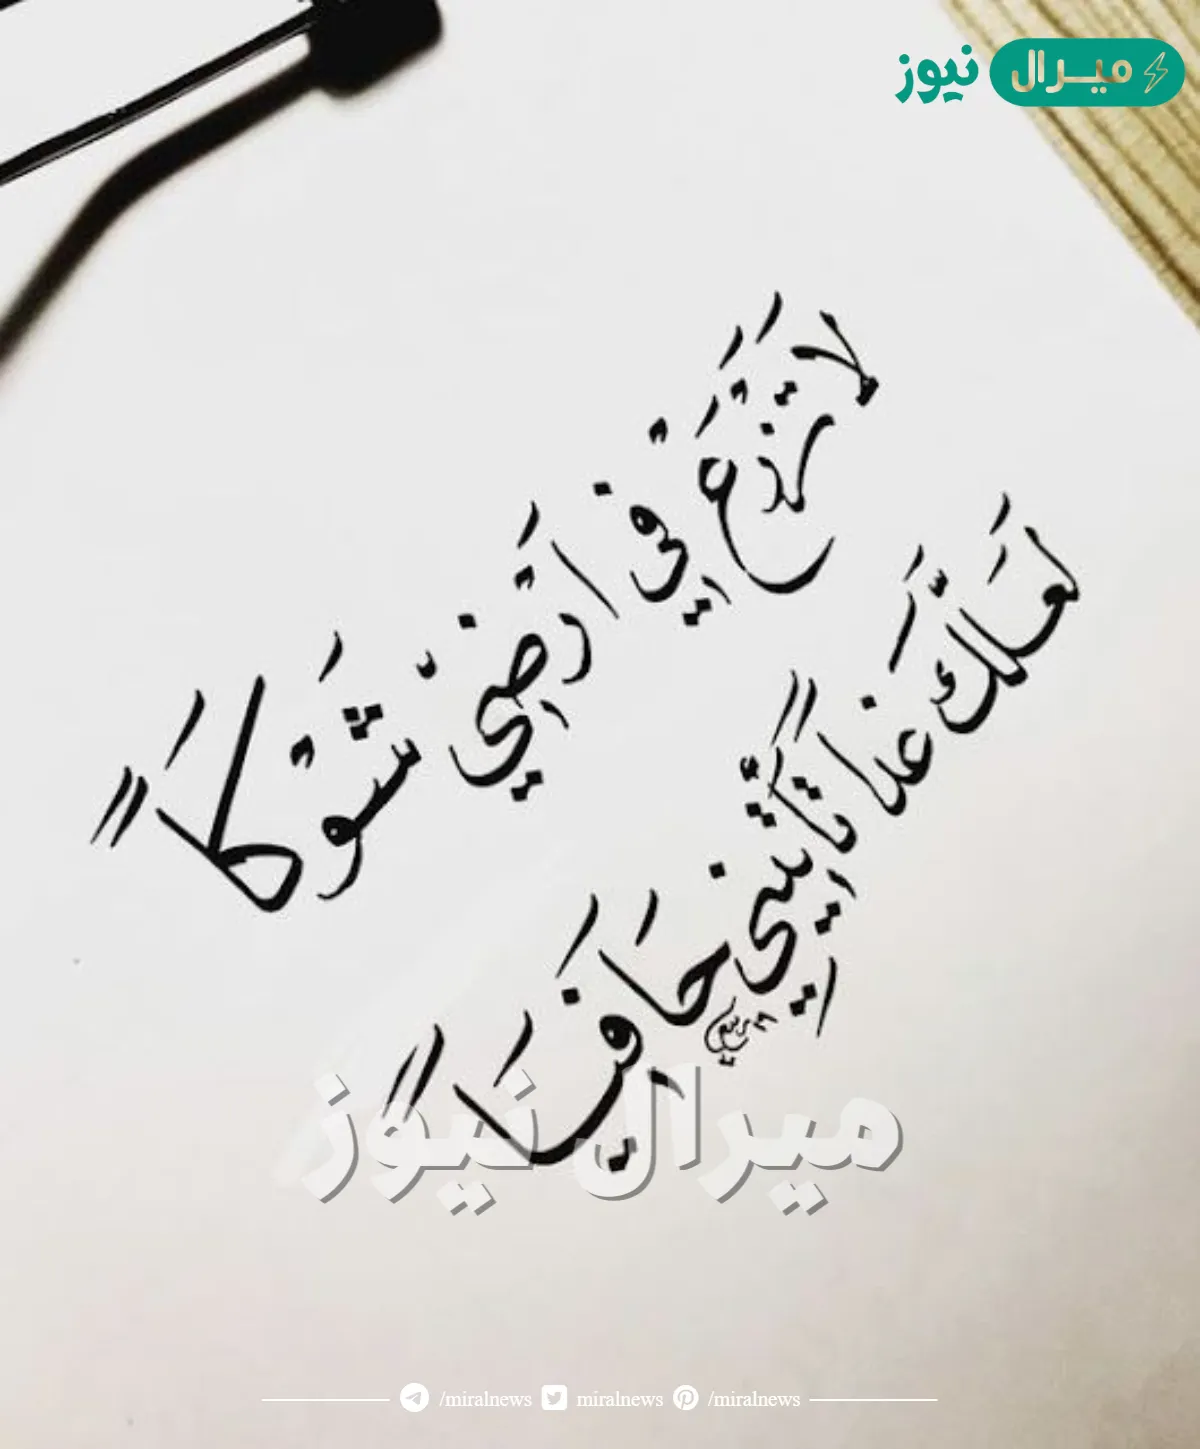 ميرال نيوز
لَا تَزْرَعَ فِيْ اَرْضِيْ شَوْكَاً
لَعَلَّكَ غَداً تَأْتِيْنِيْ حَافِيَاً
ميرال نيوز
/miralnews miralnews /miralnews